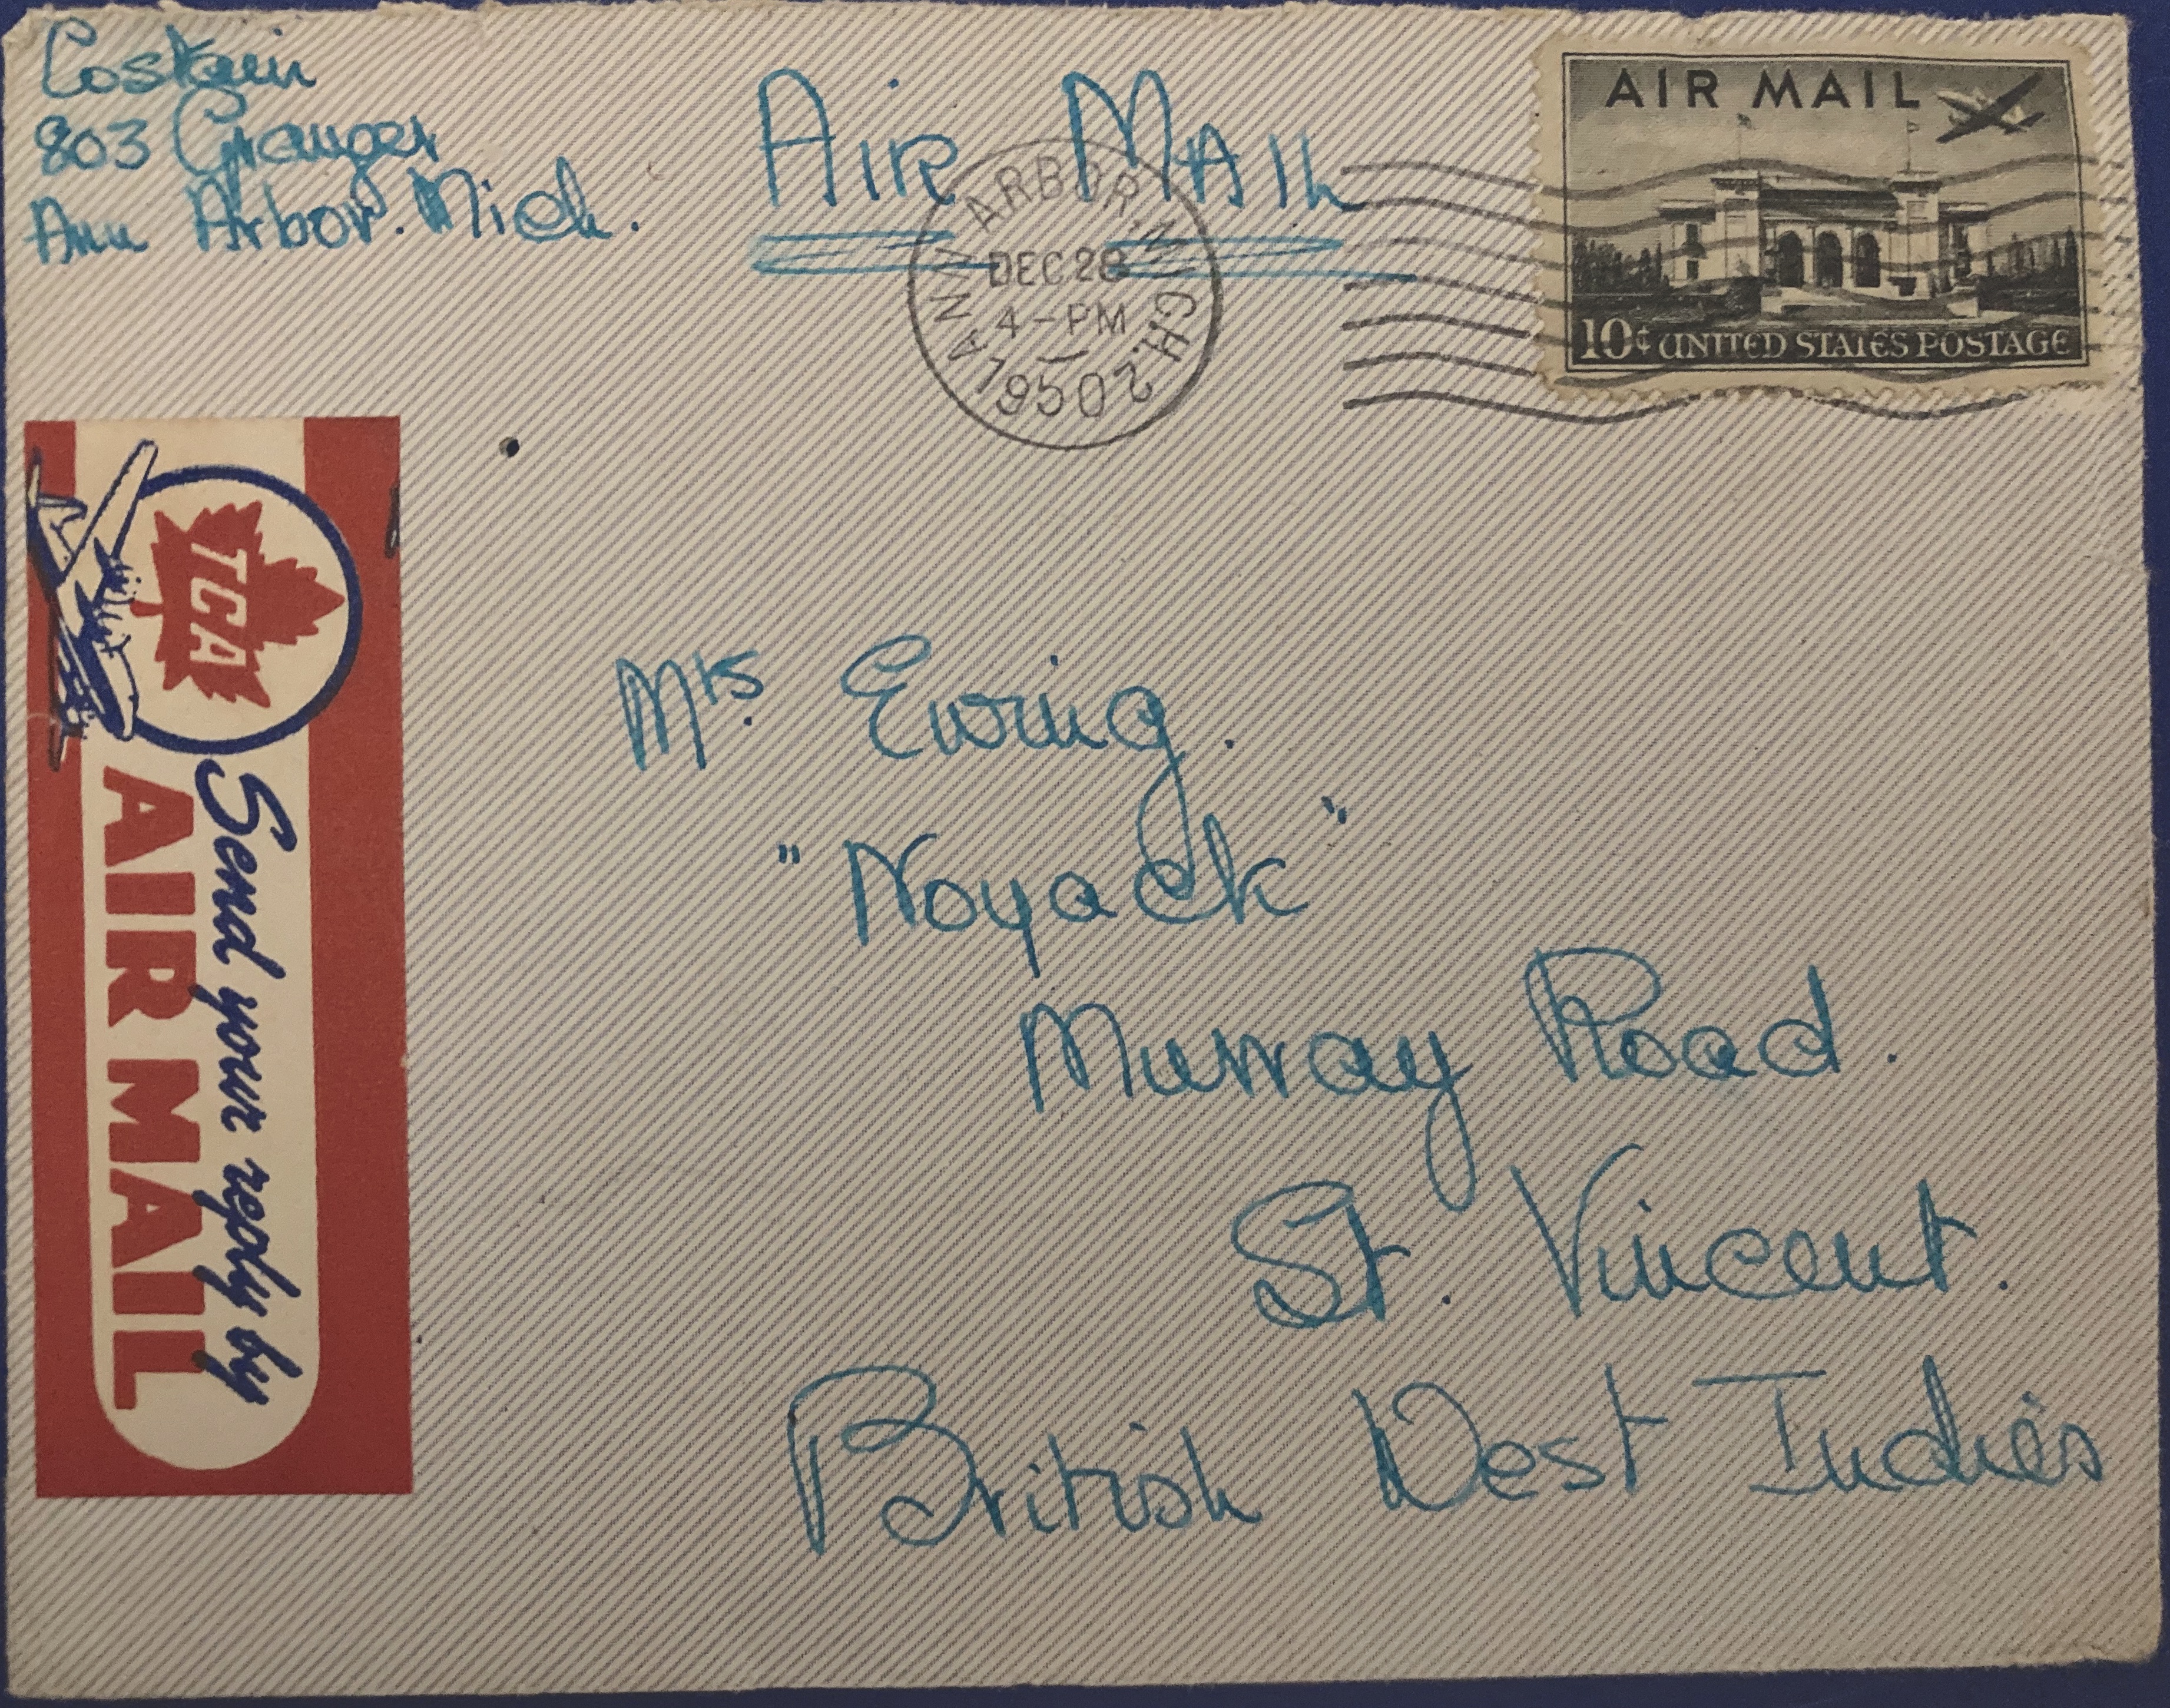 Costain
803 Granger
Ann Arbor. Mich.
AIR MAIL
ANN ARBOR, MICH.
DEC 28
4-PM
1950
2
AIR MAIL
10¢ UNITED STATES POSTAGE
TCA
Send your reply by
AIR MAIL
Mrs. Ewing.
"Noyack"
Murray Road.
St. Vincent.
British West Indies